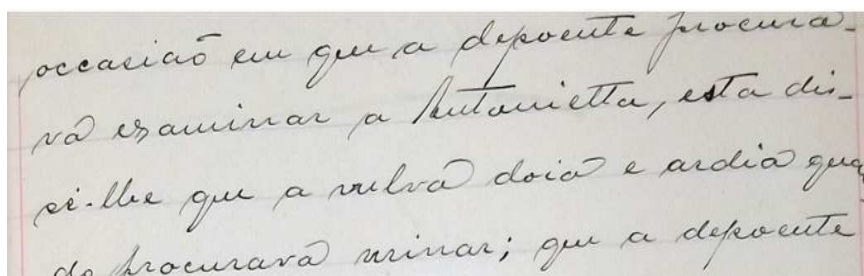 occasião em que a depoente procura-
va examinar a Antonietta, esta dis-
se-lhe que a vulva doia e ardia quan
do procurava urinar; que a depoente